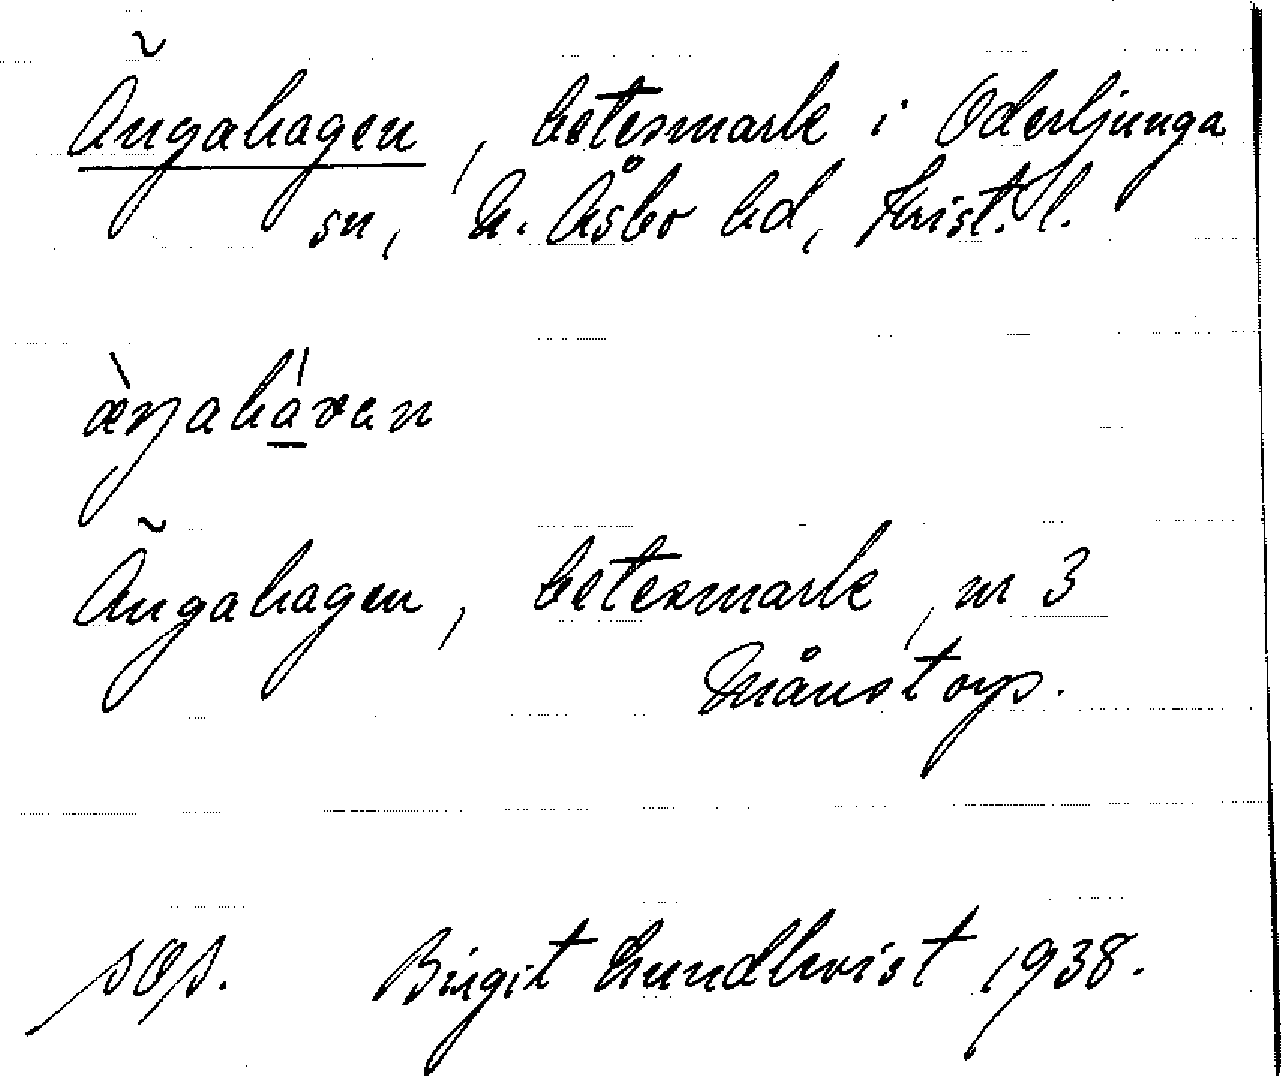 Ängahagen, betesmark i Oderljunga
sn, N. Åsbo hd, Krist. l.
æ̀ŋahávan
Ängahagen, betesmark, nr 3
Månstorp.
sOp. Birgit Lundkvist 1938.